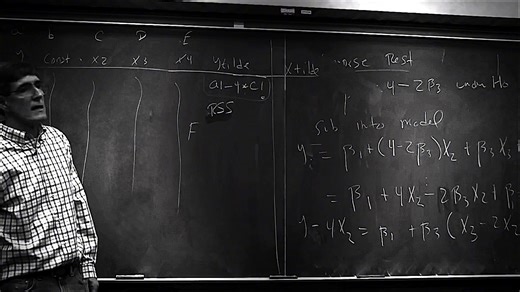 a b C D E
y Const. X2 X3 X4 ytilde Xtilde
a1-4*C1
RSS
F
Rest
4-2β₃ under H₀
sub into model
yᵢ = β₁+(4-2β₃)X₂ + β₃X
= β₁ + 4X₂ - 2β₃X₂ + β
y-4X₂ = β₁ + β₃(X₃-2X₂